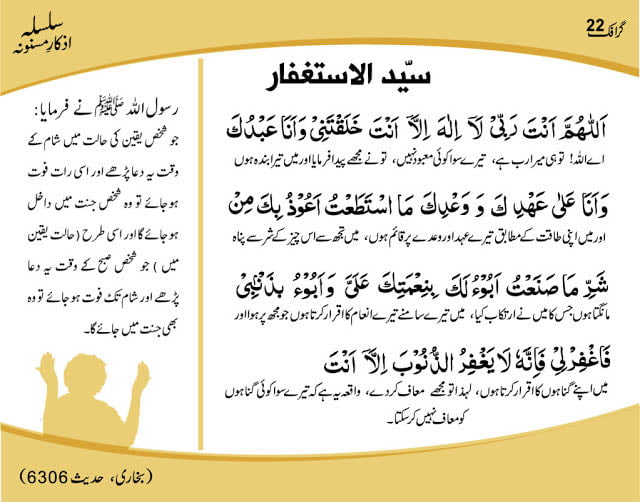 سلسلہ
اذکارِ مسنونہ
گرافک 22
سیّد الاستغفار
اَللّٰهُمَّ اَنْتَ رَبِّيْ لَآ اِلٰهَ اِلَّا اَنْتَ خَلَقْتَنِيْ وَاَنَا عَبْدُكَ
اے اللہ! تو ہی میرا رب ہے، تیرے سوا کوئی معبود نہیں، تو نے مجھے پیدا فرمایا اور میں تیرا بندہ ہوں
وَاَنَا عَلٰى عَهْدِكَ وَ وَعْدِكَ مَا اسْتَطَعْتُ اَعُوْذُ بِكَ مِنْ
اور میں اپنی طاقت کے مطابق تیرے عہد اور وعدے پر قائم ہوں، میں تجھ سے اس چیز کے شر سے پناہ
شَرِّ مَا صَنَعْتُ اَبُوْءُ لَكَ بِنِعْمَتِكَ عَلَيَّ وَاَبُوْءُ بِذَنْۢبِيْ
مانگتا ہوں جس کا میں نے ارتکاب کیا، میں تیرے سامنے تیرے انعام کا اقرار کرتا ہوں جو مجھ پر ہوا اور
فَاغْفِرْلِيْ فَاِنَّهٗ لَا يَغْفِرُ الذُّنُوْبَ اِلَّا اَنْتَ
میں اپنے گناہوں کا اقرار کرتا ہوں، لہٰذا تو مجھے معاف کر دے، واقعہ یہ ہے کہ تیرے سوا کوئی گناہوں
کو معاف نہیں کر سکتا۔
رسول اللہ ﷺ نے فرمایا:
جو شخص یقین کی حالت میں شام کے
وقت یہ دعا پڑھے اور اسی رات فوت
ہو جائے تو وہ شخص جنت میں داخل
ہو جائے گا اور اسی طرح (حالت یقین
میں) جو شخص صبح کے وقت یہ دعا
پڑھے اور شام تک فوت ہو جائے تو وہ
بھی جنت میں جائے گا۔
(بخاری، حدیث 6306)